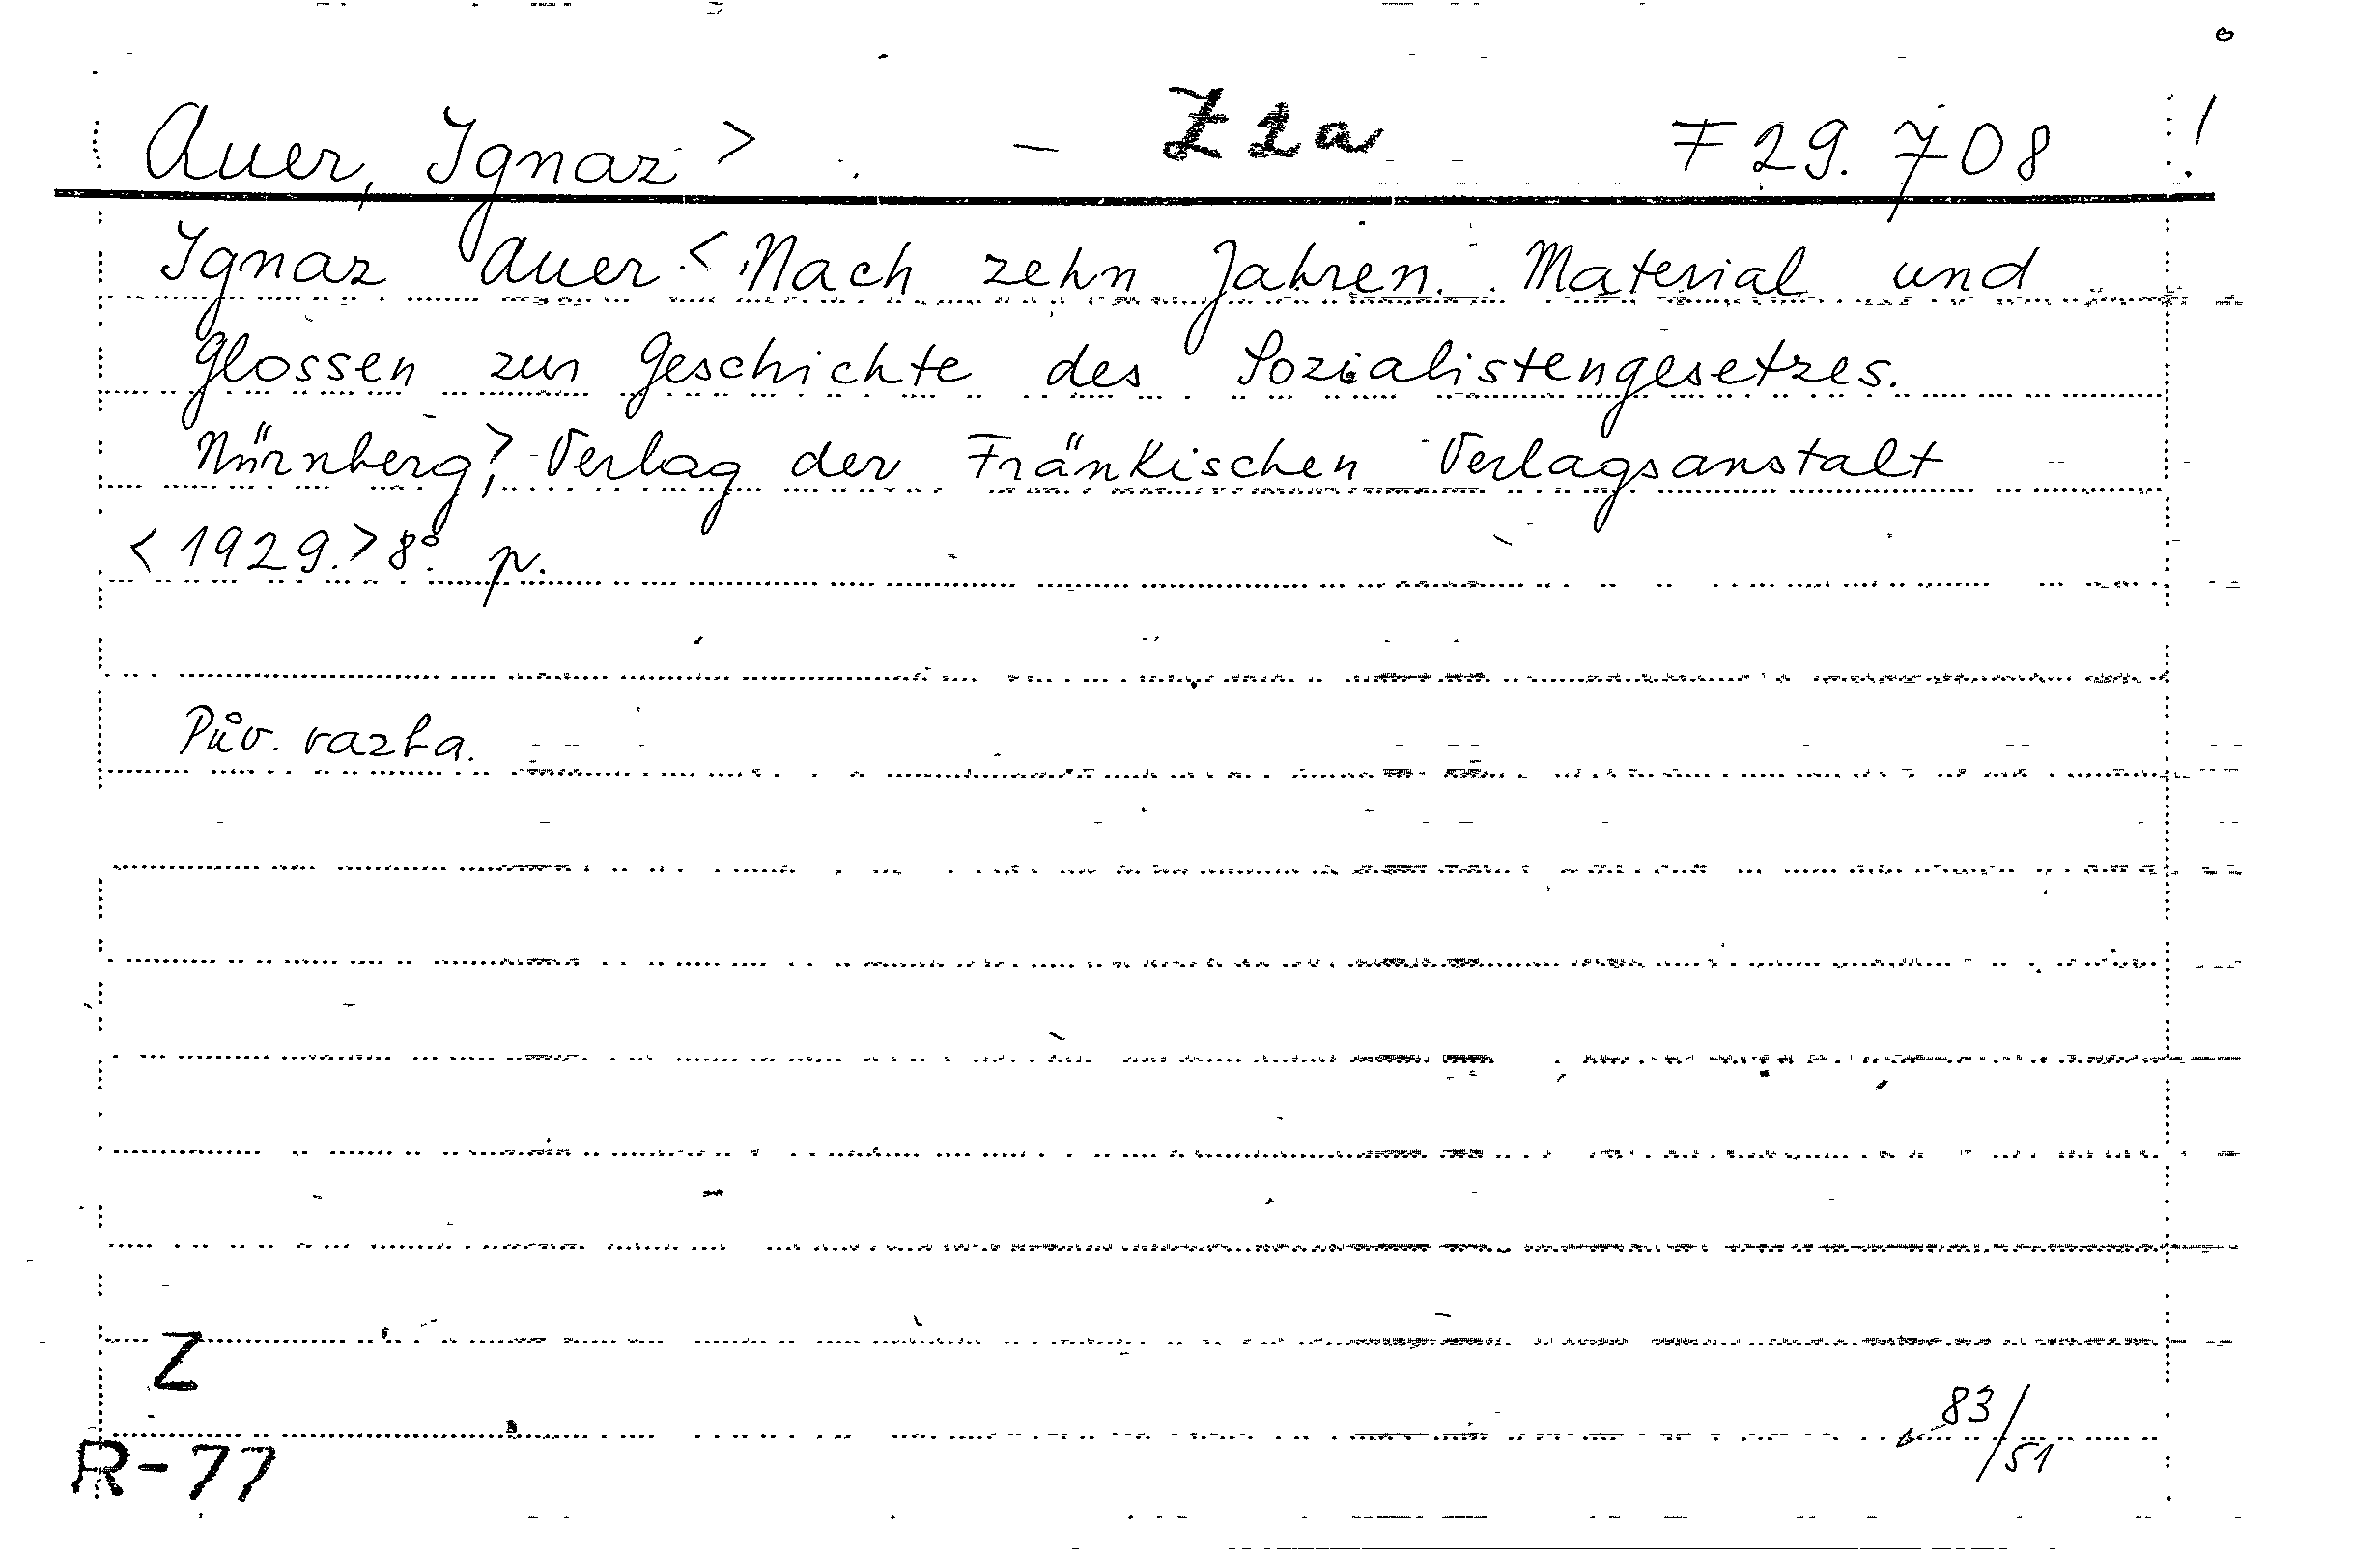 Auer, Ignaz > - Z2a F 29.708 !
Ignaz Auer < Nach zehn Jahren. Material und
Glossen zur Geschichte des Sozialistengesetzes.
Nürnberg, > Verlag der Fränkischen Verlagsanstalt
< 1929. > 8°. p.
Pův. vazba.
Z
83/51
R-77